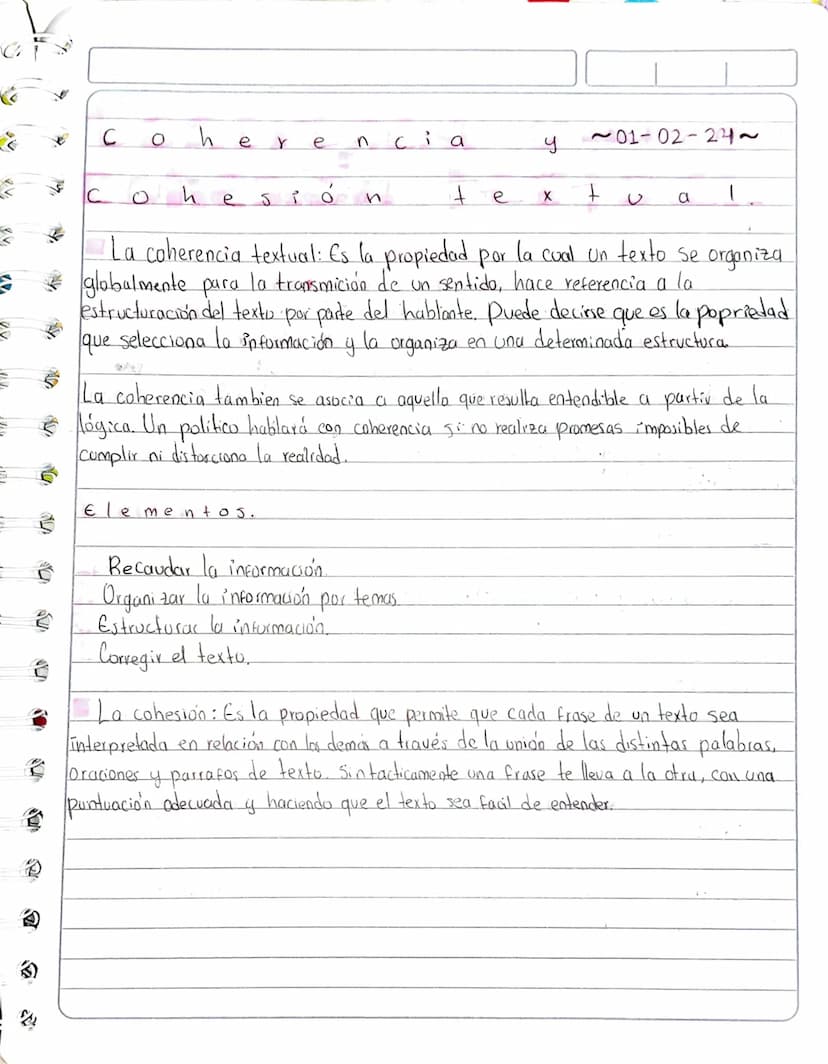 Coherencia y ~01-02-24~
cohesión textual.
La coherencia textual: Es la propiedad por la cual un texto se organiza
globalmente para la transmición de un sentido, hace referencia a la
estructuración del texto por parte del hablante. Puede decirse que es la popriedad
que selecciona la información y la organiza en una determinada estructura.
La coherencia tambien se asocia a aquello que resulta entendible a partir de la
lógica. Un político hablará con coherencia si no realiza promesas imposibles de
cumplir ni distorciona la realidad.
Elementos.
Recaudar la información.
Organizar la información por temas.
Estructurar la información.
Corregir el texto.
La cohesión: Es la propiedad que permite que cada frase de un texto sea
interpretada en relación con los demás a través de la unión de las distintas palabras,
oraciones y parrafos de texto. Sintacticamente una frase te lleva a la otra, con una
puntuación adecuada y haciendo que el texto sea facil de entender.